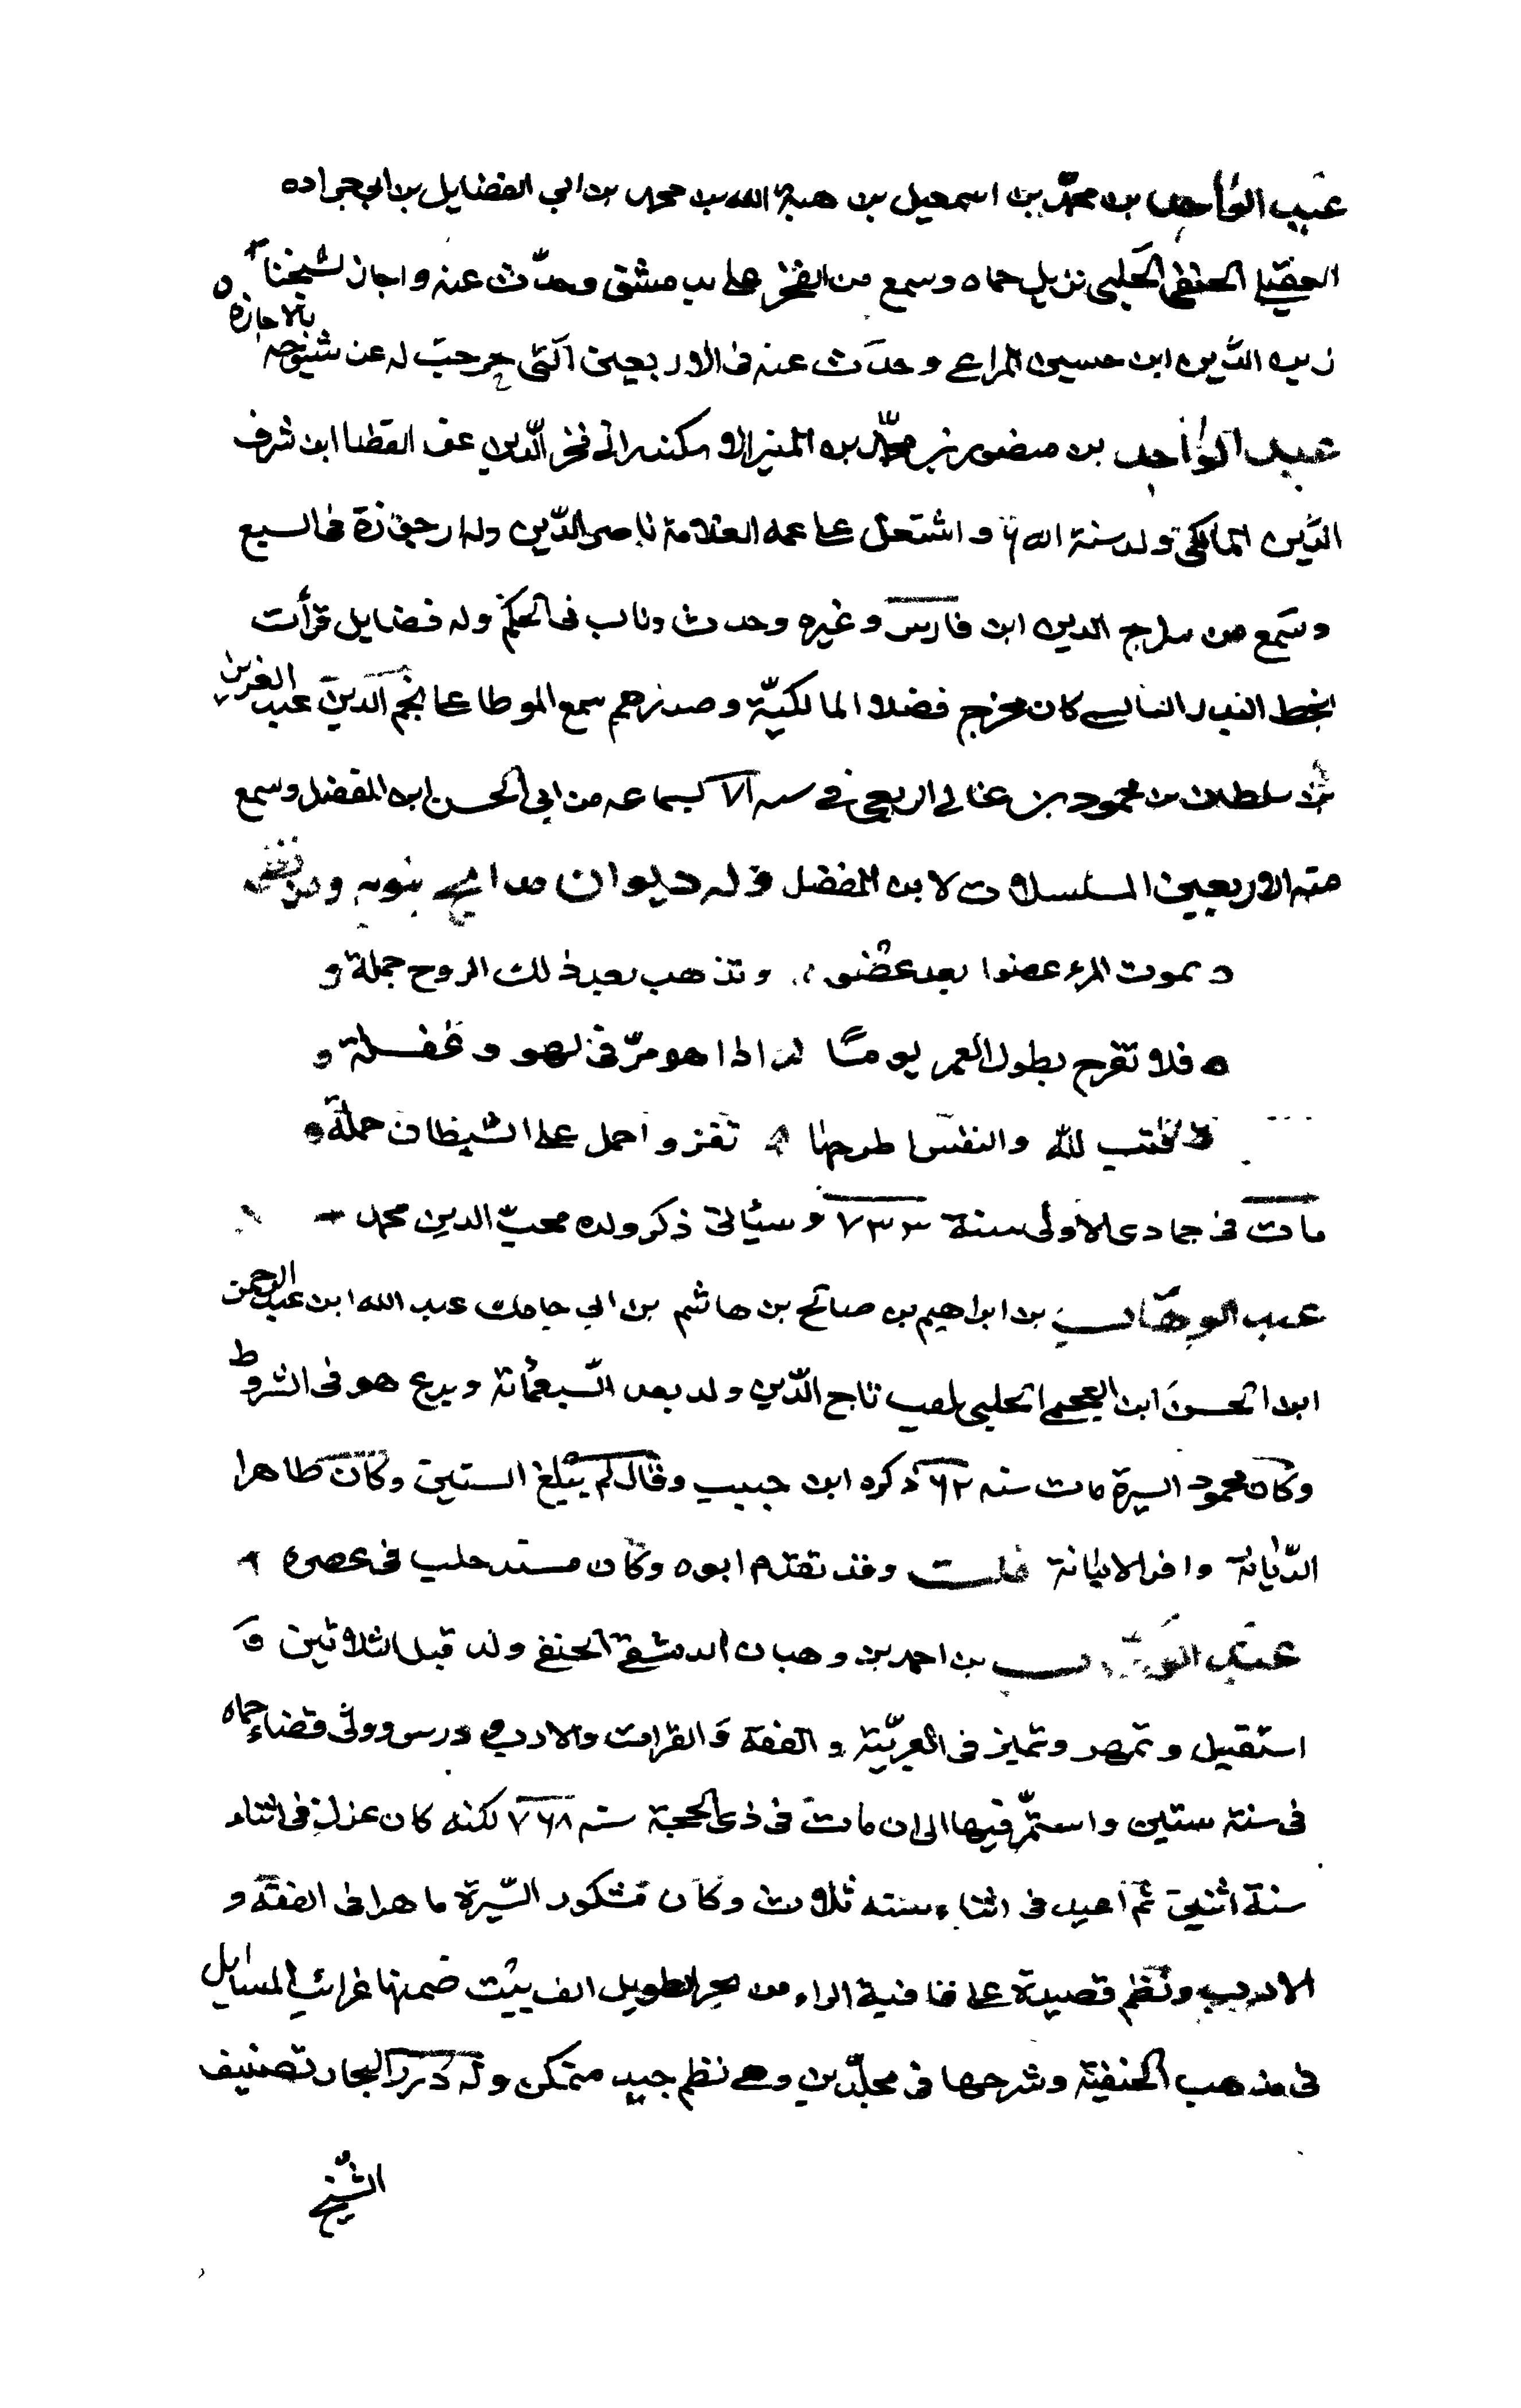 عبد الواحد بن محمد بن اسمعيل بن هبة الله بن محمد بن ابي الفضايل بن ابي جراده
العقيلي الحنفي الحلبي نزيل حماه وسمع من الفخر علي بدمشق وحدّث عنه واجاز لشيخنا
زين الدين ابن حسين المراغي وحدّث عنه في الاربعين التي خرجت له عن شيوخه بالاجازة
عبد الواحد بن منصور بن محمّد بن المنير الاسكندراني فخر الدّين عز القضا ابن شرف
الدّين المالكي ولد سنة واشتغل على عمه العلامة ناصر الدّين وله ارجوزة في السبع
وسمع من سراج الدين ابن فارس وغيره وحدث وناب في الحكم وله فضايل قرأت
بخط البدر النابلسي كان مخرج فضلا المالكيّة وصدرهم سمع الموطا على نجم الدين عبد العزيز
بن سلطان بن محمود بن غالي الربعي في سنه بسماعه من ابي الحسن ابن المفضل وسمع
منه الاربعين المسلسلات لابن المفضل وله ديوان مدايح نبويه ومن نظمه
يموت المرء عضوا بعد عضو وتذهب بعد ذلك الروح جملة
فلا تفرح بطول العمر يومًا اذا هو مرّ في لهو وغفلة
فتب لله والنفس اطرحها تفز واحمل على الشيطان حملة
مات في جمادى الاولى سنة ٧٣٣ وسيأتي ذكر ولده محبّ الدين محمد
عبد الوهّاب بن ابراهيم بن صالح بن هاشم بن ابي حامد عبد الله ابن عبد الرحمن
ابن الحسن ابن العجمي الحلبي يلقب تاج الدّين ولد بعد السّبعمأئة وبرع هو في الشروط
وكان محمود السيرة مات سنه ٧٦٢ ذكره ابن حبيب وقال لم يبلغ الستين وكان ظاهرا
الدّيانة وافر الامانة قلت وقد تقدم ابوه وكان مسند حلب في عصره
عبد الوهاب بن احمد بن وهبان الدمشقي الحنفي ولد قبل الثلاثين و
اشتغل وتمهر وتميز في العربيّة والفقه والقراءت والادب ودرس وولّي قضاء حماه
في سنة ستين واستمرّ فيها الى ان مات في ذي الحجة سنه ٧٦٨ لكنه كان عزل في اثناء
سنة اثنين ثم اعيد في اثناء سنه ثلاث وكان مشكور السّيرة ماهرا في الفقه و
الادب ونظم قصيدة على قافية الراء من بحر الطويل الف بيت ضمنها غرائب المسايل
في مذهب الحنفية وشرحها في مجلّدين وهي نظم جيد متمكن وله درر البحار تصنيف
الشّيخ